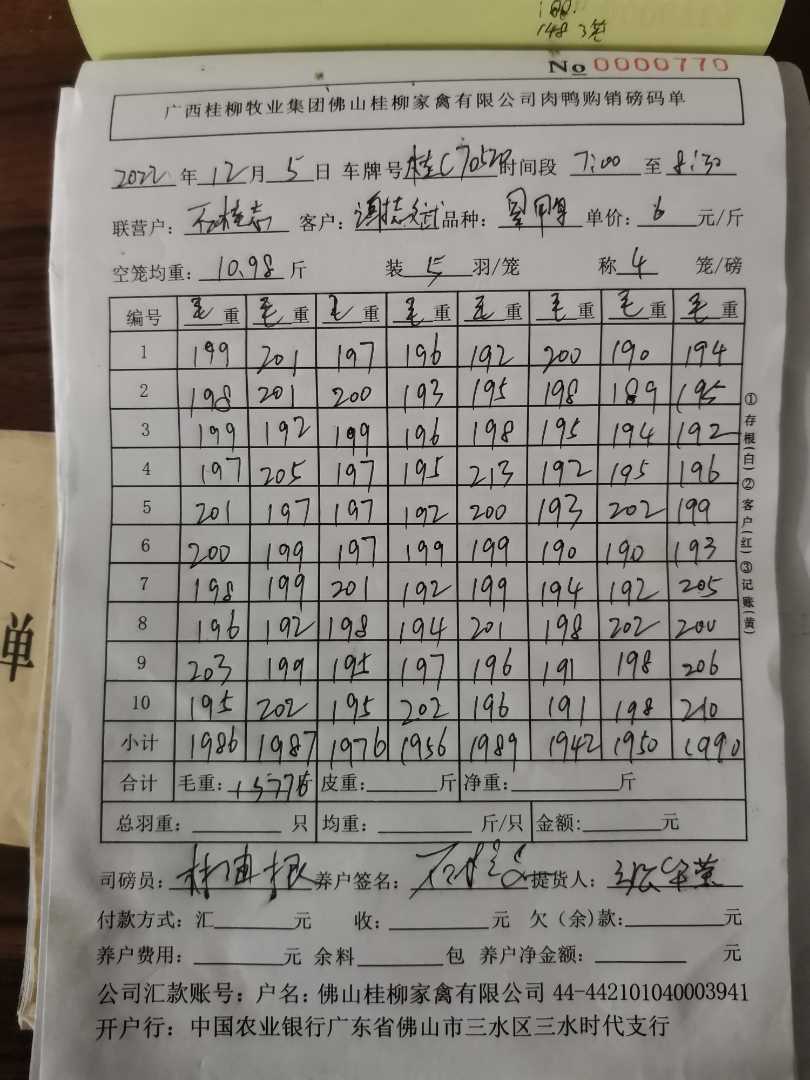 148 3笼
No 0000770
广西桂柳牧业集团佛山桂柳家禽有限公司肉鸭购销磅码单
2022 年 12 月 5 日 车牌号 桂C 时间段 7:00 至 8:30
联营户: 客户: 品种: 单价: 6 元/斤
空笼均重: 10.98 斤 装 5 羽/笼 称 4 笼/磅
编号 毛重 毛重 毛重 毛重 毛重 毛重 毛重 毛重
1 199 201 197 196 192 200 190 194
2 198 201 200 193 195 198 189 195
3 199 192 199 196 198 195 194 192
4 197 205 197 195 213 192 195 196
5 201 197 197 192 200 193 202 199
6 200 199 197 199 199 190 190 193
7 198 199 201 192 199 194 192 205
8 196 192 198 194 201 198 202 200
9 203 199 195 197 196 191 198 206
10 195 202 195 202 196 191 198 210
小计 1986 1987 1976 1956 1989 1942 1950 1990
合计 毛重: 15776 皮重: 斤 净重: 斤
总羽重: 只 均重: 斤/只 金额: 元
司磅员: 养户签名: 提货人:
付款方式: 汇 元 收: 元 欠(余)款: 元
养户费用: 元 余料 包 养户净金额: 元
公司汇款账号: 户名: 佛山桂柳家禽有限公司 44-442101040003941
开户行: 中国农业银行广东省佛山市三水区三水时代支行
①存根(白)②客户(红)③记账(黄)
单